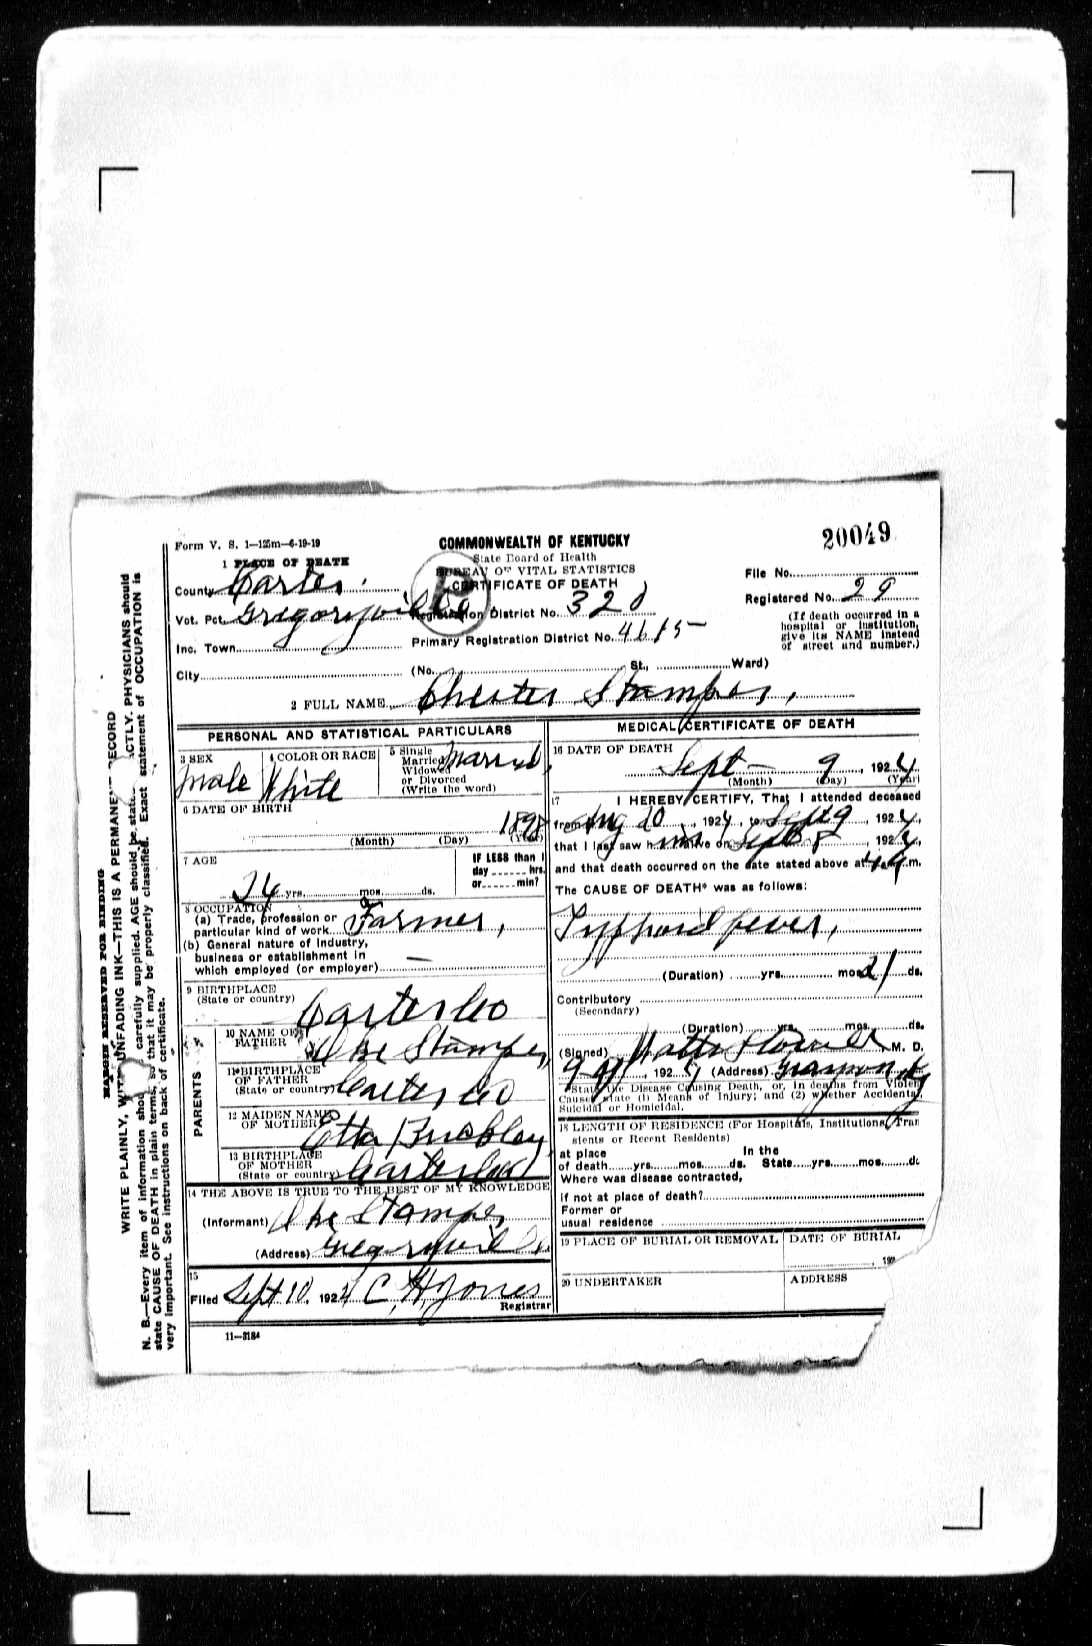 Form V. S. 1—125m—6-19-19
COMMONWEALTH OF KENTUCKY
State Board of Health
BUREAU OF VITAL STATISTICS
CERTIFICATE OF DEATH
20049
1 PLACE OF DEATH
County Carter
Vot. Pct. Gregoryville
Inc. Town
City
Registration District No. 320
Primary Registration District No. 4615
(No. St., Ward)
File No.
Registered No. 29
(If death occurred in a
hospital or institution,
give its NAME instead
of street and number.)
2 FULL NAME Chester Stamper,
PERSONAL AND STATISTICAL PARTICULARS
3 SEX
Male
4 COLOR OR RACE
White
5 Single
Married
Widowed
or Divorced
(Write the word)
Married,
6 DATE OF BIRTH
1898
(Month) (Day) (Year)
7 AGE
26 yrs. mos. ds.
IF LESS than 1
day hrs.
or min?
8 OCCUPATION
(a) Trade, profession or
particular kind of work Farmer,
(b) General nature of Industry,
business or establishment in
which employed (or employer) —
9 BIRTHPLACE
(State or country) Carter Co
PARENTS
10 NAME OF
FATHER Ike Stamper,
11 BIRTHPLACE
OF FATHER
(State or country) Carter Co
12 MAIDEN NAME
OF MOTHER Etta
13 BIRTHPLACE
OF MOTHER
(State or country) Carter Co
14 THE ABOVE IS TRUE TO THE BEST OF MY KNOWLEDGE
(Informant) Ike Stamper
(Address) Gregoryville
15
Filed Sept 10, 1924 C. H. Jones
Registrar
11—3184
MEDICAL CERTIFICATE OF DEATH
16 DATE OF DEATH
Sept — 9, 1924
(Month) (Day) (Year)
17 I HEREBY CERTIFY, That I attended deceased
from Aug 20, 1924, to Sept 9, 1924,
that I last saw him alive on Sept 8, 1924,
and that death occurred on the date stated above at 4 a m.
The CAUSE OF DEATH* was as follows:
Typhoid fever,
(Duration) yrs. mos. 21 ds.
Contributory
(Secondary)
(Duration) yrs. mos. ds.
(Signed) M. D.
192 (Address)
*State the Disease Causing Death, or, in deaths from Violent
Causes state (1) Means of Injury; and (2) whether Accidental,
Suicidal or Homicidal.
18 LENGTH OF RESIDENCE (For Hospitals, Institutions, Tran
sients or Recent Residents)
at place In the
of death yrs. mos. ds. State yrs. mos. ds
Where was disease contracted,
if not at place of death?
Former or
usual residence
19 PLACE OF BURIAL OR REMOVAL DATE OF BURIAL
, 192
20 UNDERTAKER ADDRESS
MARGIN RESERVED FOR BINDING
WRITE PLAINLY, WITH UNFADING INK—THIS IS A PERMANENT RECORD
N. B.—Every item of information should carefully supplied. AGE should be state ACTLY. PHYSICIANS should
state CAUSE OF DEATH in plain terms, so that it may be properly classified. Exact statement of OCCUPATION is
very important. See instructions on back of certificate.